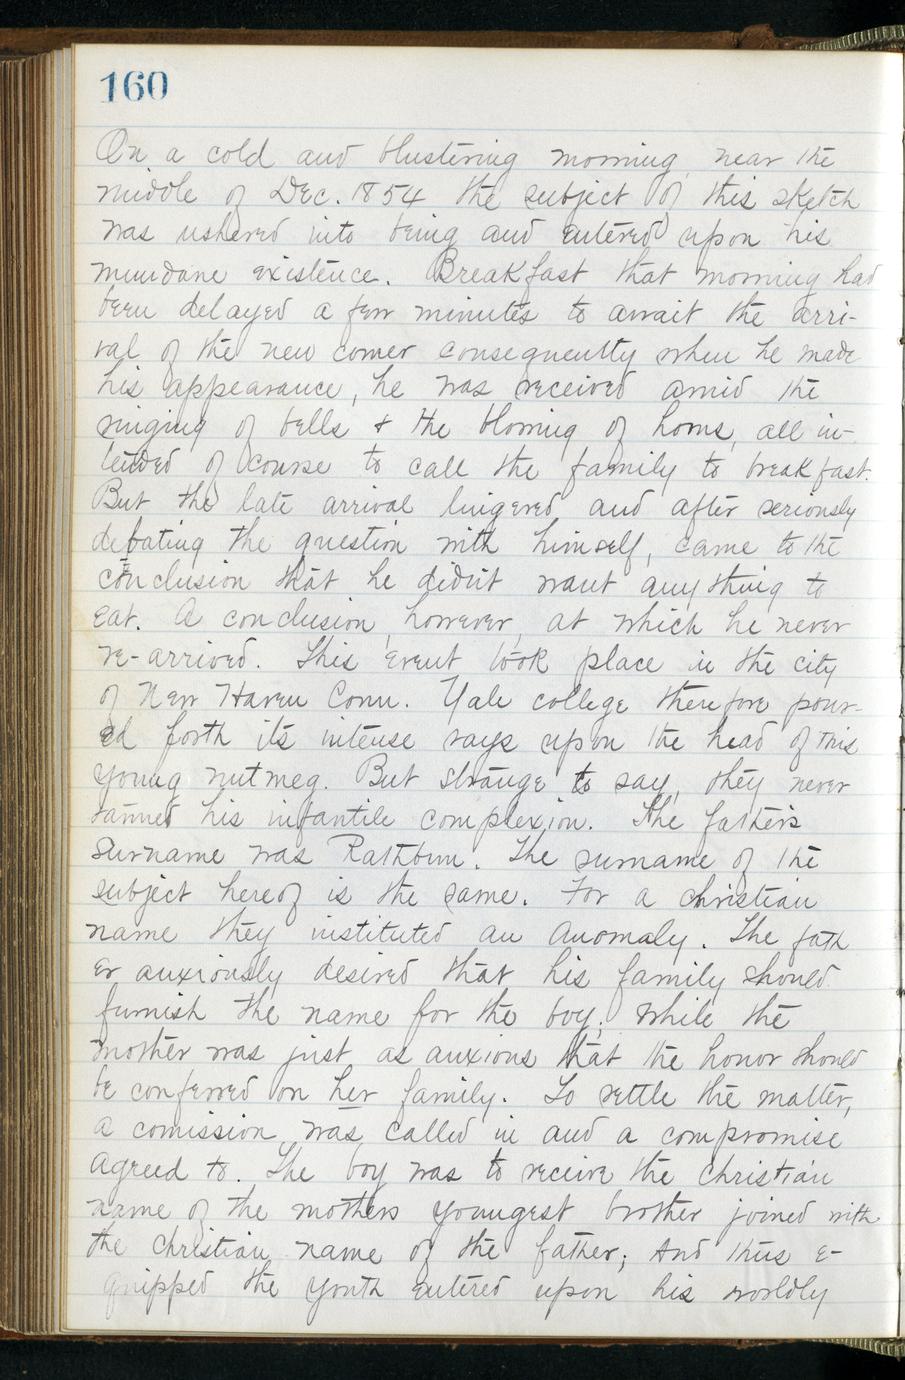 160
On a cold and blustering morning, near the
middle of Dec. 1854 the subject of this sketch
was ushered into being and entered upon his
mundane existence. Breakfast that morning had
been delayed a few minutes to await the arri-
val of the new comer consequently when he made
his appearance, he was received amid the
ringing of bells & the blowing of horns, all in-
tended of course to call the family to breakfast.
But the late arrival lingered and after seriously
debating the question with himself, came to the
conclusion that he didn't want anything to
eat. A conclusion, however, at which he never
re-arrived. This event took place in the city
of New Haven Conn. Yale college therefore pour-
ed forth its intense rays upon the head of this
young nutmeg. But strange to say, they never
tanned his infantile complexion. The father's
surname was Rathbun. The surname of the
subject hereof is the same. For a christian
name they instituted an anomaly. The fath
er anxiously desired that his family should
furnish the name for the boy, while the
mother was just as anxious that the honor should
be conferred on her family. To settle the matter,
a comission was called in and a compromise
agreed to. The boy was to receive the Christian
name of the mothers youngest brother joined with
the christian name of the father; And thus e-
quipped the youth entered upon his worldly